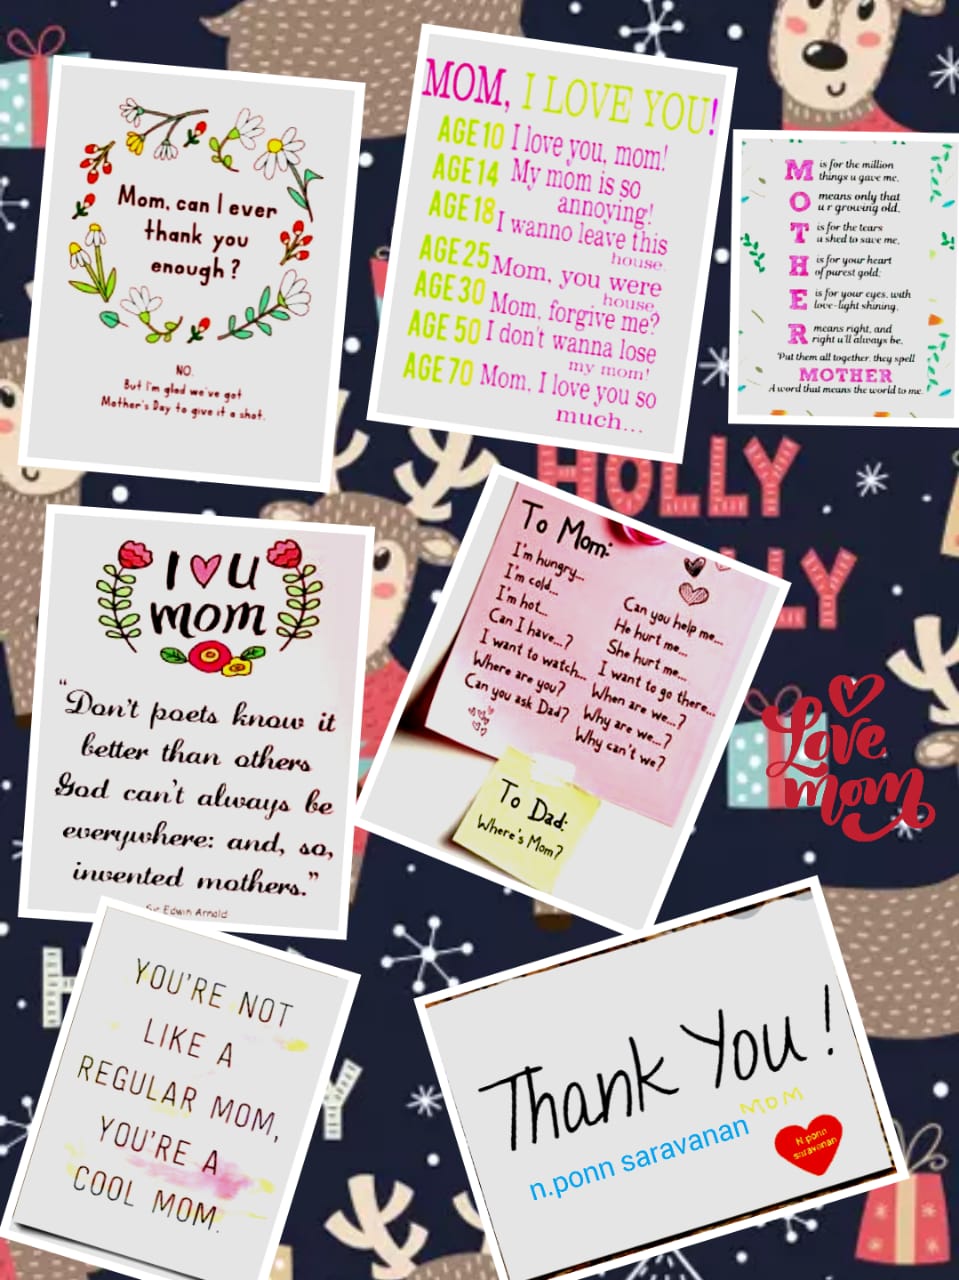 Mom, can I ever
thank you
enough?
NO.
But I'm glad we've got
Mother's Day to give it a shot.
MOM, I LOVE YOU!
AGE 10 I love you, mom!
AGE 14 My mom is so
annoying!
AGE 18 I wanno leave this
house.
AGE 25 Mom, you were
house.
AGE 30 Mom, forgive me?
AGE 50 I don't wanna lose
my mom!
AGE 70 Mom, I love you so
much...
M is for the million
things u gave me,
O means only that
u r growing old,
T is for the tears
u shed to save me,
H is for your heart
of purest gold;
E is for your eyes, with
love-light shining,
R means right, and
right u'll always be,
Put them all together, they spell
MOTHER
A word that means the world to me.
HOLLY
LY
I ♥ U
mom
"Don't poets know it
better than others
God can't always be
everywhere: and, so,
invented mothers."
Sir Edwin Arnold
To Mom:
I'm hungry...
I'm cold...
I'm hot...
Can I have...?
I want to watch...
Where are you?
Can you ask Dad?
Can you help me...
He hurt me...
She hurt me...
I want to go there...
When are we...?
Why are we...?
Why can't we?
To Dad:
Where's Mom?
Love
mom
H
Y
YOU'RE NOT
LIKE A
REGULAR MOM,
YOU'RE A
COOL MOM.
Thank You!
MOM
n.ponn saravanan
N.ponn
saravanan